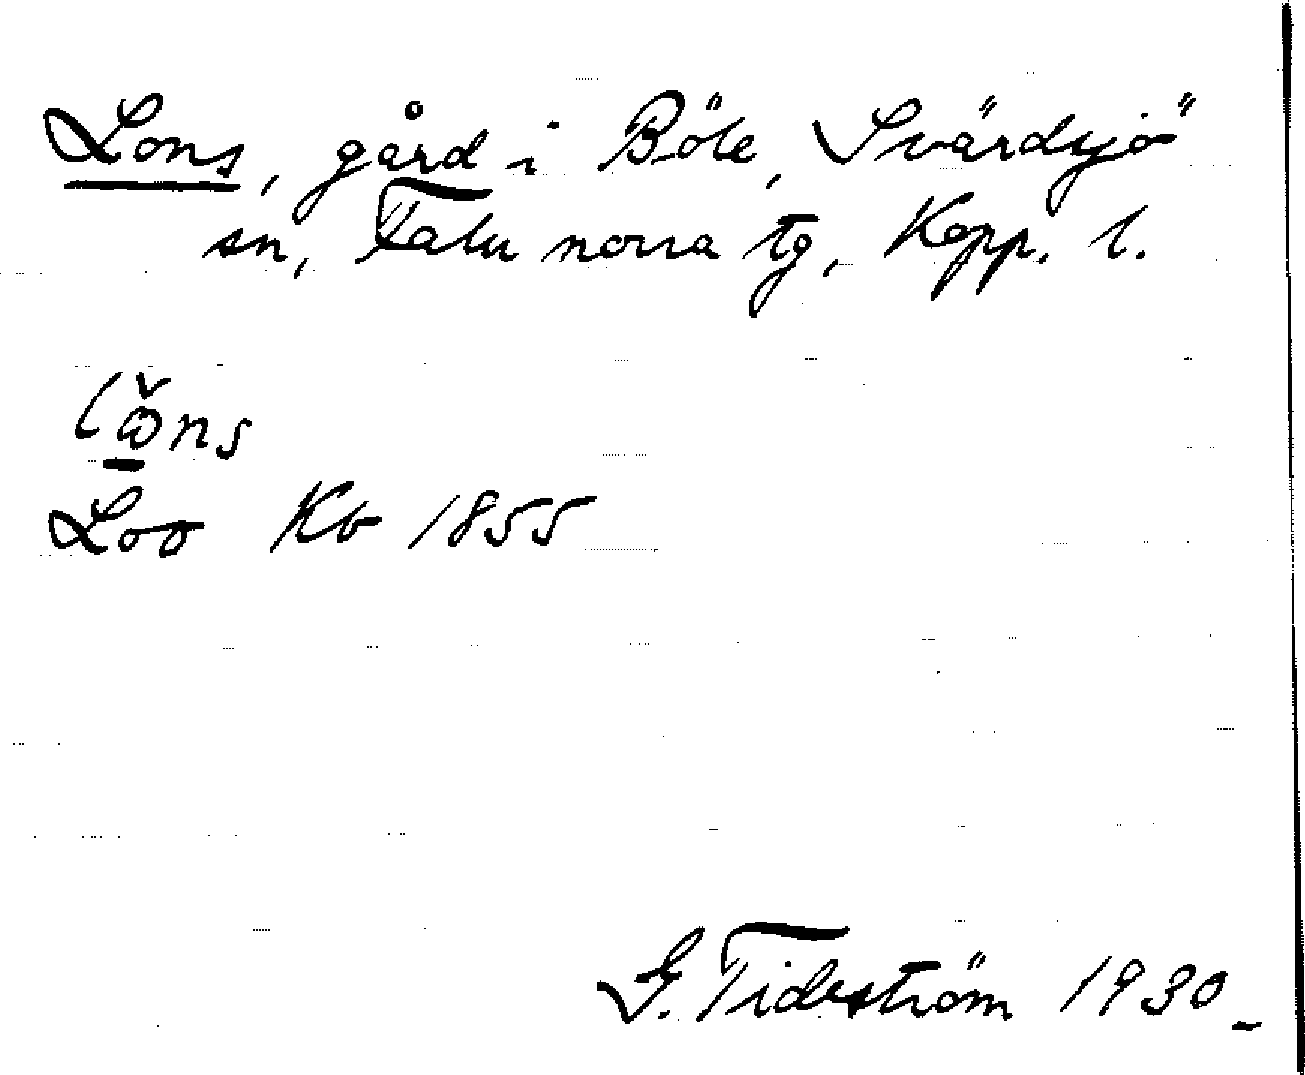 Lons, gård i Böle, Svärdsjö
sn, Falu norra tg, Kopp. l.
Loo Kb 1855
G. Tideström 1930